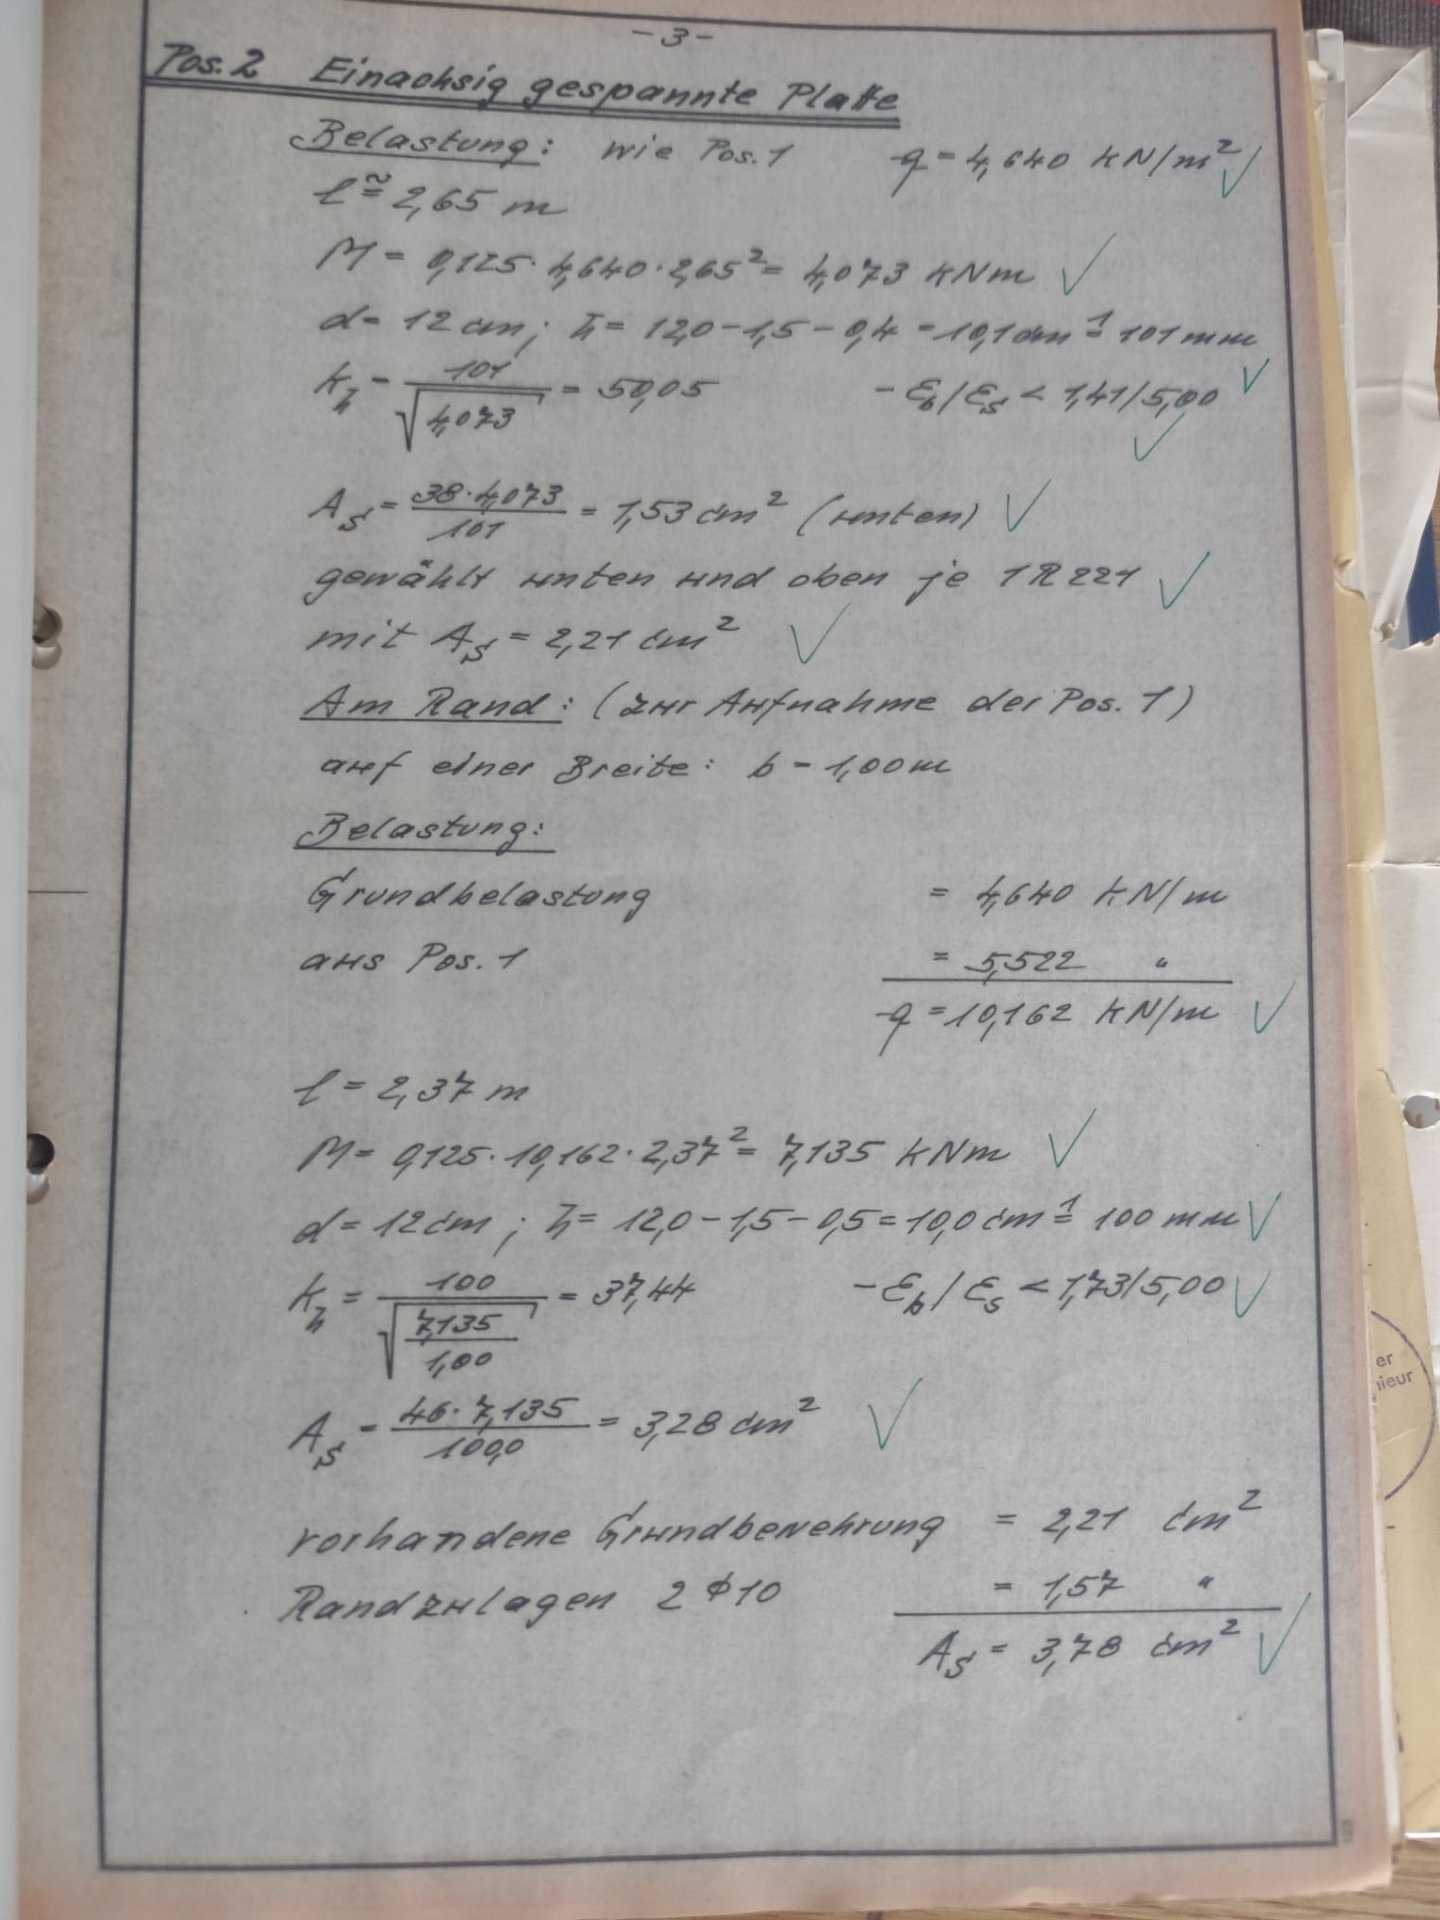 -3-
Pos. 2 Einachsig gespannte Platte
Belastung: wie Pos. 1 q = 4,640 KN/m²
l ≅ 2,65 m
M = 0,125 · 4,640 · 2,65² = 4,073 KNm
d = 12 cm; h = 12,0 - 1,5 - 0,4 = 10,1 cm ≙ 101 mm
Kh = 101 / √4,073 = 50,05 -εb/εs < 1,41/5,00
As = 38 · 4,073 / 101 = 1,53 cm² (unten)
gewählt unten und oben je 1 R 221
mit As = 2,21 cm²
Am Rand: (zur Aufnahme der Pos. 1)
auf einer Breite: b = 1,00 m
Belastung:
Grundbelastung = 4,640 KN/m
aus Pos. 1 = 5,522 "
q = 10,162 KN/m
l = 2,37 m
M = 0,125 · 10,162 · 2,37² = 7,135 KNm
d = 12 cm; h = 12,0 - 1,5 - 0,5 = 10,0 cm ≙ 100 mm
Kh = 100 / √(7,135 / 1,00) = 37,44 -εb/εs < 1,73/5,00
As = 46 · 7,135 / 100,0 = 3,28 cm²
vorhandene Grundbewehrung = 2,21 cm²
Randzulagen 2 ϕ 10 = 1,57 "
As = 3,78 cm²
er
ieur